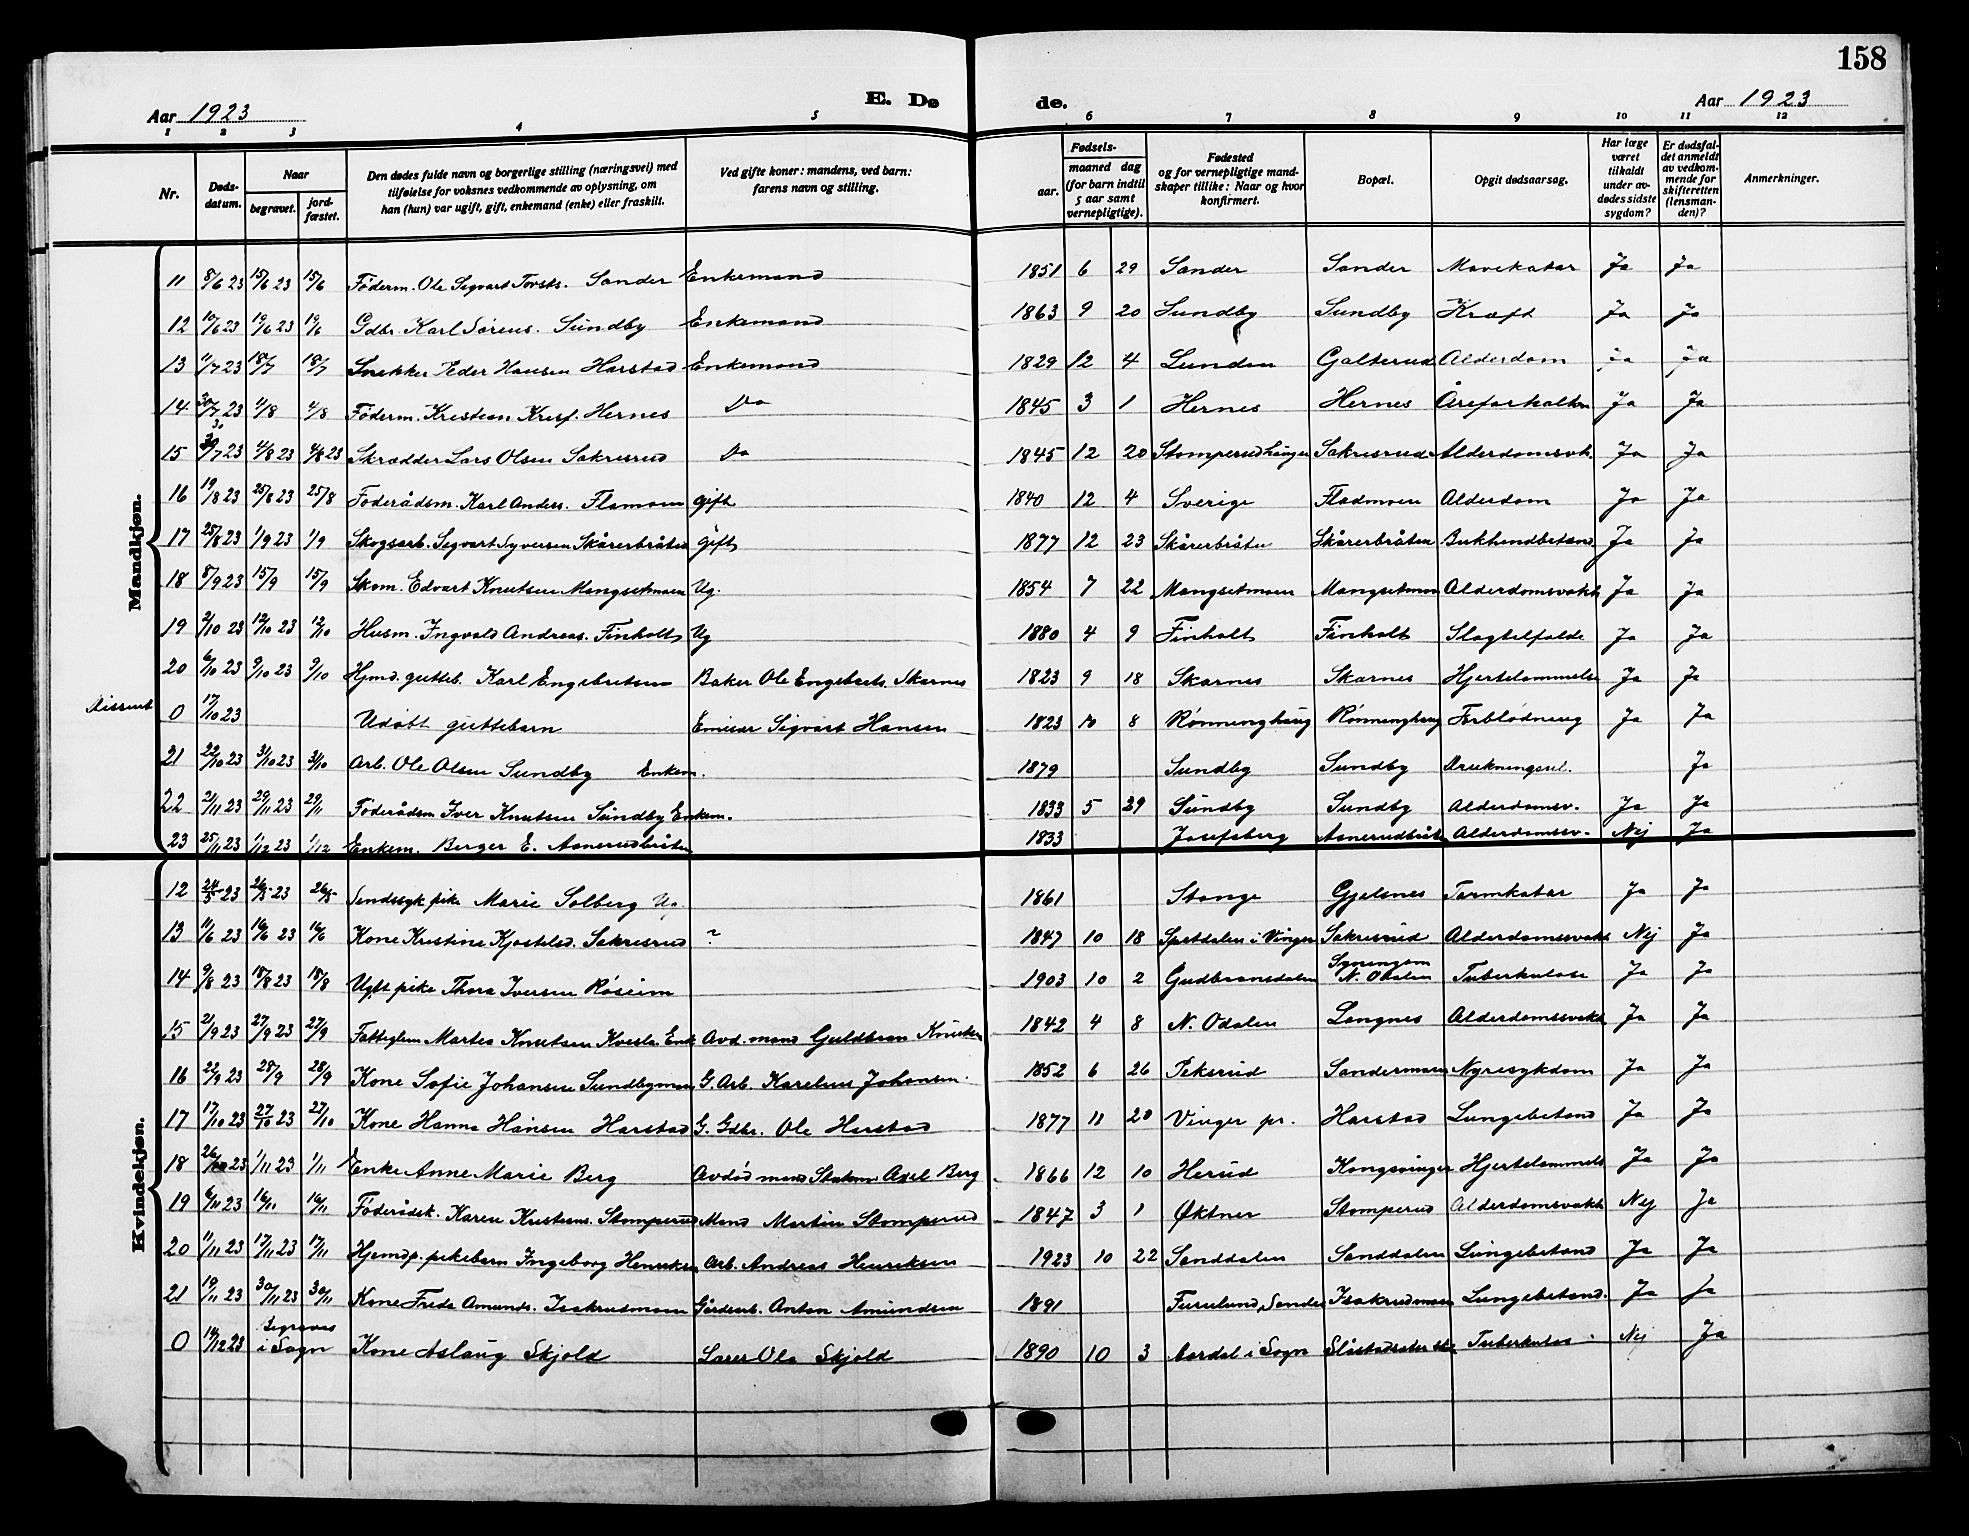 158
Aar 1923
E. Dø
de.
Aar 1923
1 2 3 4 5 6 7 8 9 10 11 12
Nr.
Døds-
datum.
Naar
begravet.
jord-
fæstet.
Den dødes fulde navn og borgerlige stilling (næringsvei) med
tilføielse for voksnes vedkommende av oplysning, om
han (hun) var ugift, gift, enkemand (enke) eller fraskilt.
Ved gifte koner: mandens, ved barn:
farens navn og stilling.
Fødsels-
aar.
maaned dag
(for barn indtil
5 aar samt
vernepligtige).
Fødested
og for vernepligtige mand-
skaper tillike: Naar og hvor
konfirmert.
Bopæl.
Opgit dødsaarsag.
Har læge
været
tilkaldt
under av-
dødes sidste
sygdom?
Er dødsfal-
det anmeldt
av vedkom-
mende for
skifteretten
(lensman-
den)?
Anmerkninger.
Mandkjøn.
11 8/6 23 15/6 23 15/6 Føderm. Ole Sigvart Torsts. Sander Enkemand 1851 6 29 Sander Sander Mavekatar Ja Ja
12 10/6 23 19/6 23 19/6 Gdbr. Karl Sørens. Sundby Enkemand 1863 9 20 Sundby Sundby Kræft Ja Ja
13 11/7 23 18/7 18/7 Snekker Peder Hansen Harstad Enkemand 1829 12 4 Lunden Galterud Alderdom Ja Ja
14 30/7 23 4/8 4/8 Føderm. Kristian Krisf. Hernes Do 1845 3 1 Hernes Hernes Åreforkalkn Ja Ja
15 30/7 23 4/8 23 4/8 23 Skrædder Lars Olsen Sakrisrud Do 1845 12 20 Stomperud Sakrisrud Alderdomsvk. Ja Ja
16 19/8 23 25/8 23 25/8 Føderådsm. Karl Anders. Flamoen gift 1840 12 4 Sverige Fladmoen Alderdom Ja Ja
17 25/8 23 1/9 23 1/9 Skogsarb. Sigvart Syversen Skårerbråten gift 1877 12 23 Skårerbråten Skårerbråten Bukhindbetænd Ja Ja
18 8/9 23 15/9 15/9 Skom. Edvart Knutsen Mangsetmoen Ug. 1854 7 22 Mangsetmoen Mangsetmoen Alderdomsvakh Ja Ja
19 2/10 23 12/10 23 12/10 Husm. Ingvald Andreas. Finholt Ug 1880 4 9 Finholt Finholt Slagtilfælde Ja Ja
20 6/10 23 9/10 23 9/10 Hjmd. gutteb. Karl Engebretsen Baker Ole Engebrets. Skarnes 1823 9 18 Skarnes Skarnes Hjertelammelse Ja Ja
Dissent 0 17/10 23 Udøbt guttebarn Emisær Sigvart Hansen 1823 10 8 Rønninghaug Rønninghaug Forblødning Ja Ja
21 22/10 23 31/10 23 31/10 Arb. Ole Olsen Sundby Enkem. 1879 Sundby Sundby Drukningsul. Ja
22 21/11 23 29/11 23 29/11 Føderådsm Iver Knutsen Sundby Enkem. 1833 5 29 Sundby Sundby Alderdomsv. Ja Ja
23 25/11 23 1/12 23 1/12 Enkem. Berger E. Asnerudbråten 1833 Josefsberg Asnerudbråt Alderdomssv. Nej Ja
Kvindekjøn.
12 24/5 23 26/5 23 26/5 Sindssyk pike Marie Solberg Ug. 1861 Stange Gjelsnes Tarmkatar Ja Ja
13 11/6 23 16/6 23 16/6 Kone Kristine Kjostelsd. Sakrisrud ? 1847 10 18 Spetdalen i Vinger Sakrisrud Alderdomssvakh Nej Ja
14 9/8 23 18/8 23 18/8 Ugft pike Thora Iversen Røseim 1903 10 2 Gudbransdalen N. Odalen Tuberkulose Ja Ja
15 21/9 23 27/9 23 27/9 Fattiglem Martea Knutsen Enk Avd. mand Guldbran Knutsen 1842 4 8 N. Odalen Langnes Alderdomssvakh Ja Ja
16 22/9 23 28/9 28/9 Kone Sofie Johansen Sundbymoen G. Arb. Karelius Johansen 1852 6 26 Peksrud Sandermoen Nyresykdom Ja Ja
17 17/10 23 27/10 23 27/10 Kone Hanna Hansen Harstad G. Gdbr. Ole Harstad 1877 11 20 Vinger pr. Harstad Lungebetænd Ja Ja
18 26/10 23 1/11 23 1/11 Enke Anne Marie Berg Avdød mand Axel Berg 1866 12 10 Herud Kongsvinger Hjertelammels Ja Ja
19 6/11 23 16/11 16/11 Føderådsk. Karen Kristians. Stomperud Mand Martin Stomperud 1847 3 1 Øktner Stomperud Alderdomsvakh Nej Ja
20 11/11 23 17/11 23 17/11 Hjemdp. pikebarn Ingeborg Henriksen Arb. Andreas Henriksen 1923 10 22 Sanddalen Sanddalen Lungebetænd Ja Ja
21 19/11 23 30/11 23 30/11 Kone Frida Amunds. Isakrudmoen Gårdarb. Anton Amundsen 1891 Furulund, Sander Isakrudmoen Lungebetænd. Ja Ja
0 14/12 23 Begraves i Sogn Kone Aslaug Skjold Lærer Ola Skjold 1890 10 3 Aardal i Sogn Tuberkulos Nej Ja